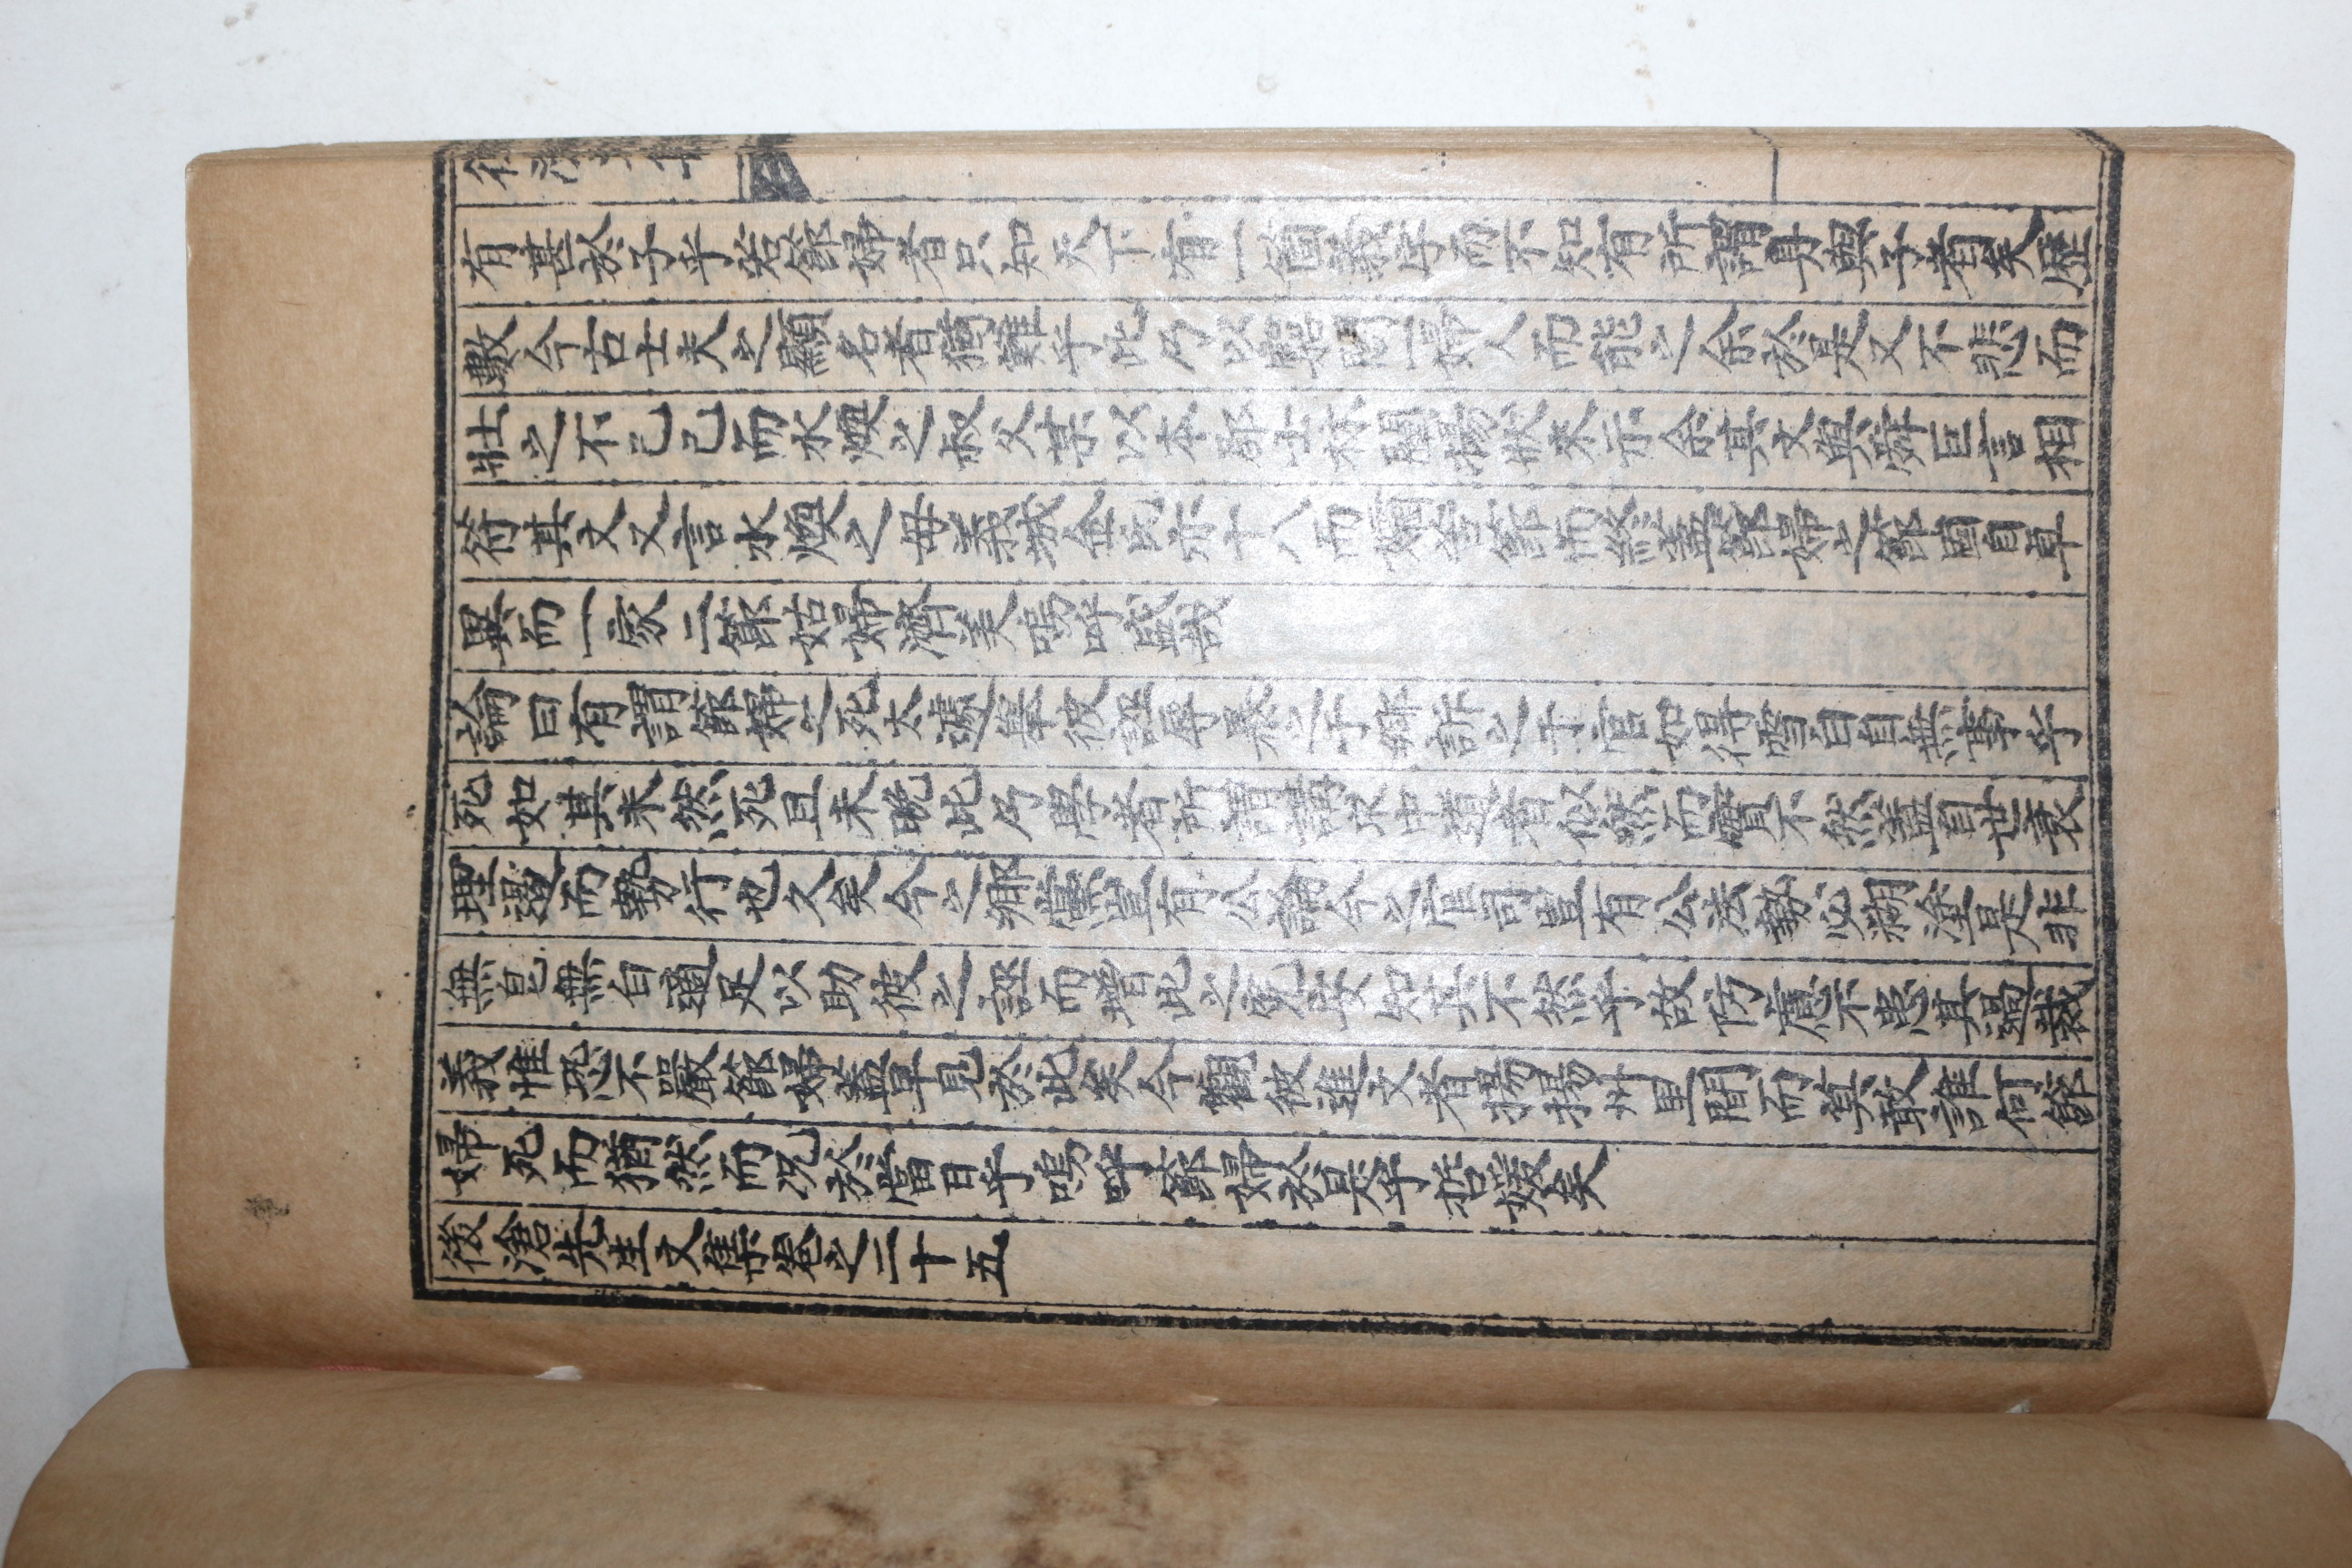 有甚於子乎若節婦者只知天下有一箇義字而不知有所謂身與子者矣歷
數今古士夫之顯名者猶難乎此乃以窮閻一婦人而能之余於是又不悲而
壯之不已已而水煥之叔父某以本郡士林闡揚狀來示余其文與舜臣言相
符其文又言水煥之母義城金氏亦十八而孀苦節而終蓋節婦之節固自卓
異而一家二節姑婦濟美嗚呼盛哉
論曰有謂節婦之死太遽擧彼誣辱暴之于鄕訴之于官如得雪白自無事乎
死如其未然死且未晩此乃學者所謂講求中道者似然而實不然蓋自世衰
理遏而勢行也久矣今之鄕黨豈有公論今之官司豈有公法勢必糊塗是非
無皂無白適足以助彼之誣而增此之寃安知其不然乎故防慮不患其過裁
義惟恐不嚴節婦蓋早見於此矣今觀彼進文者揚揚州里間而莫敢誰何節
婦死而猶然而况於當日乎嗚呼節婦於是乎哲媛矣
後滄先生文集卷之二十五